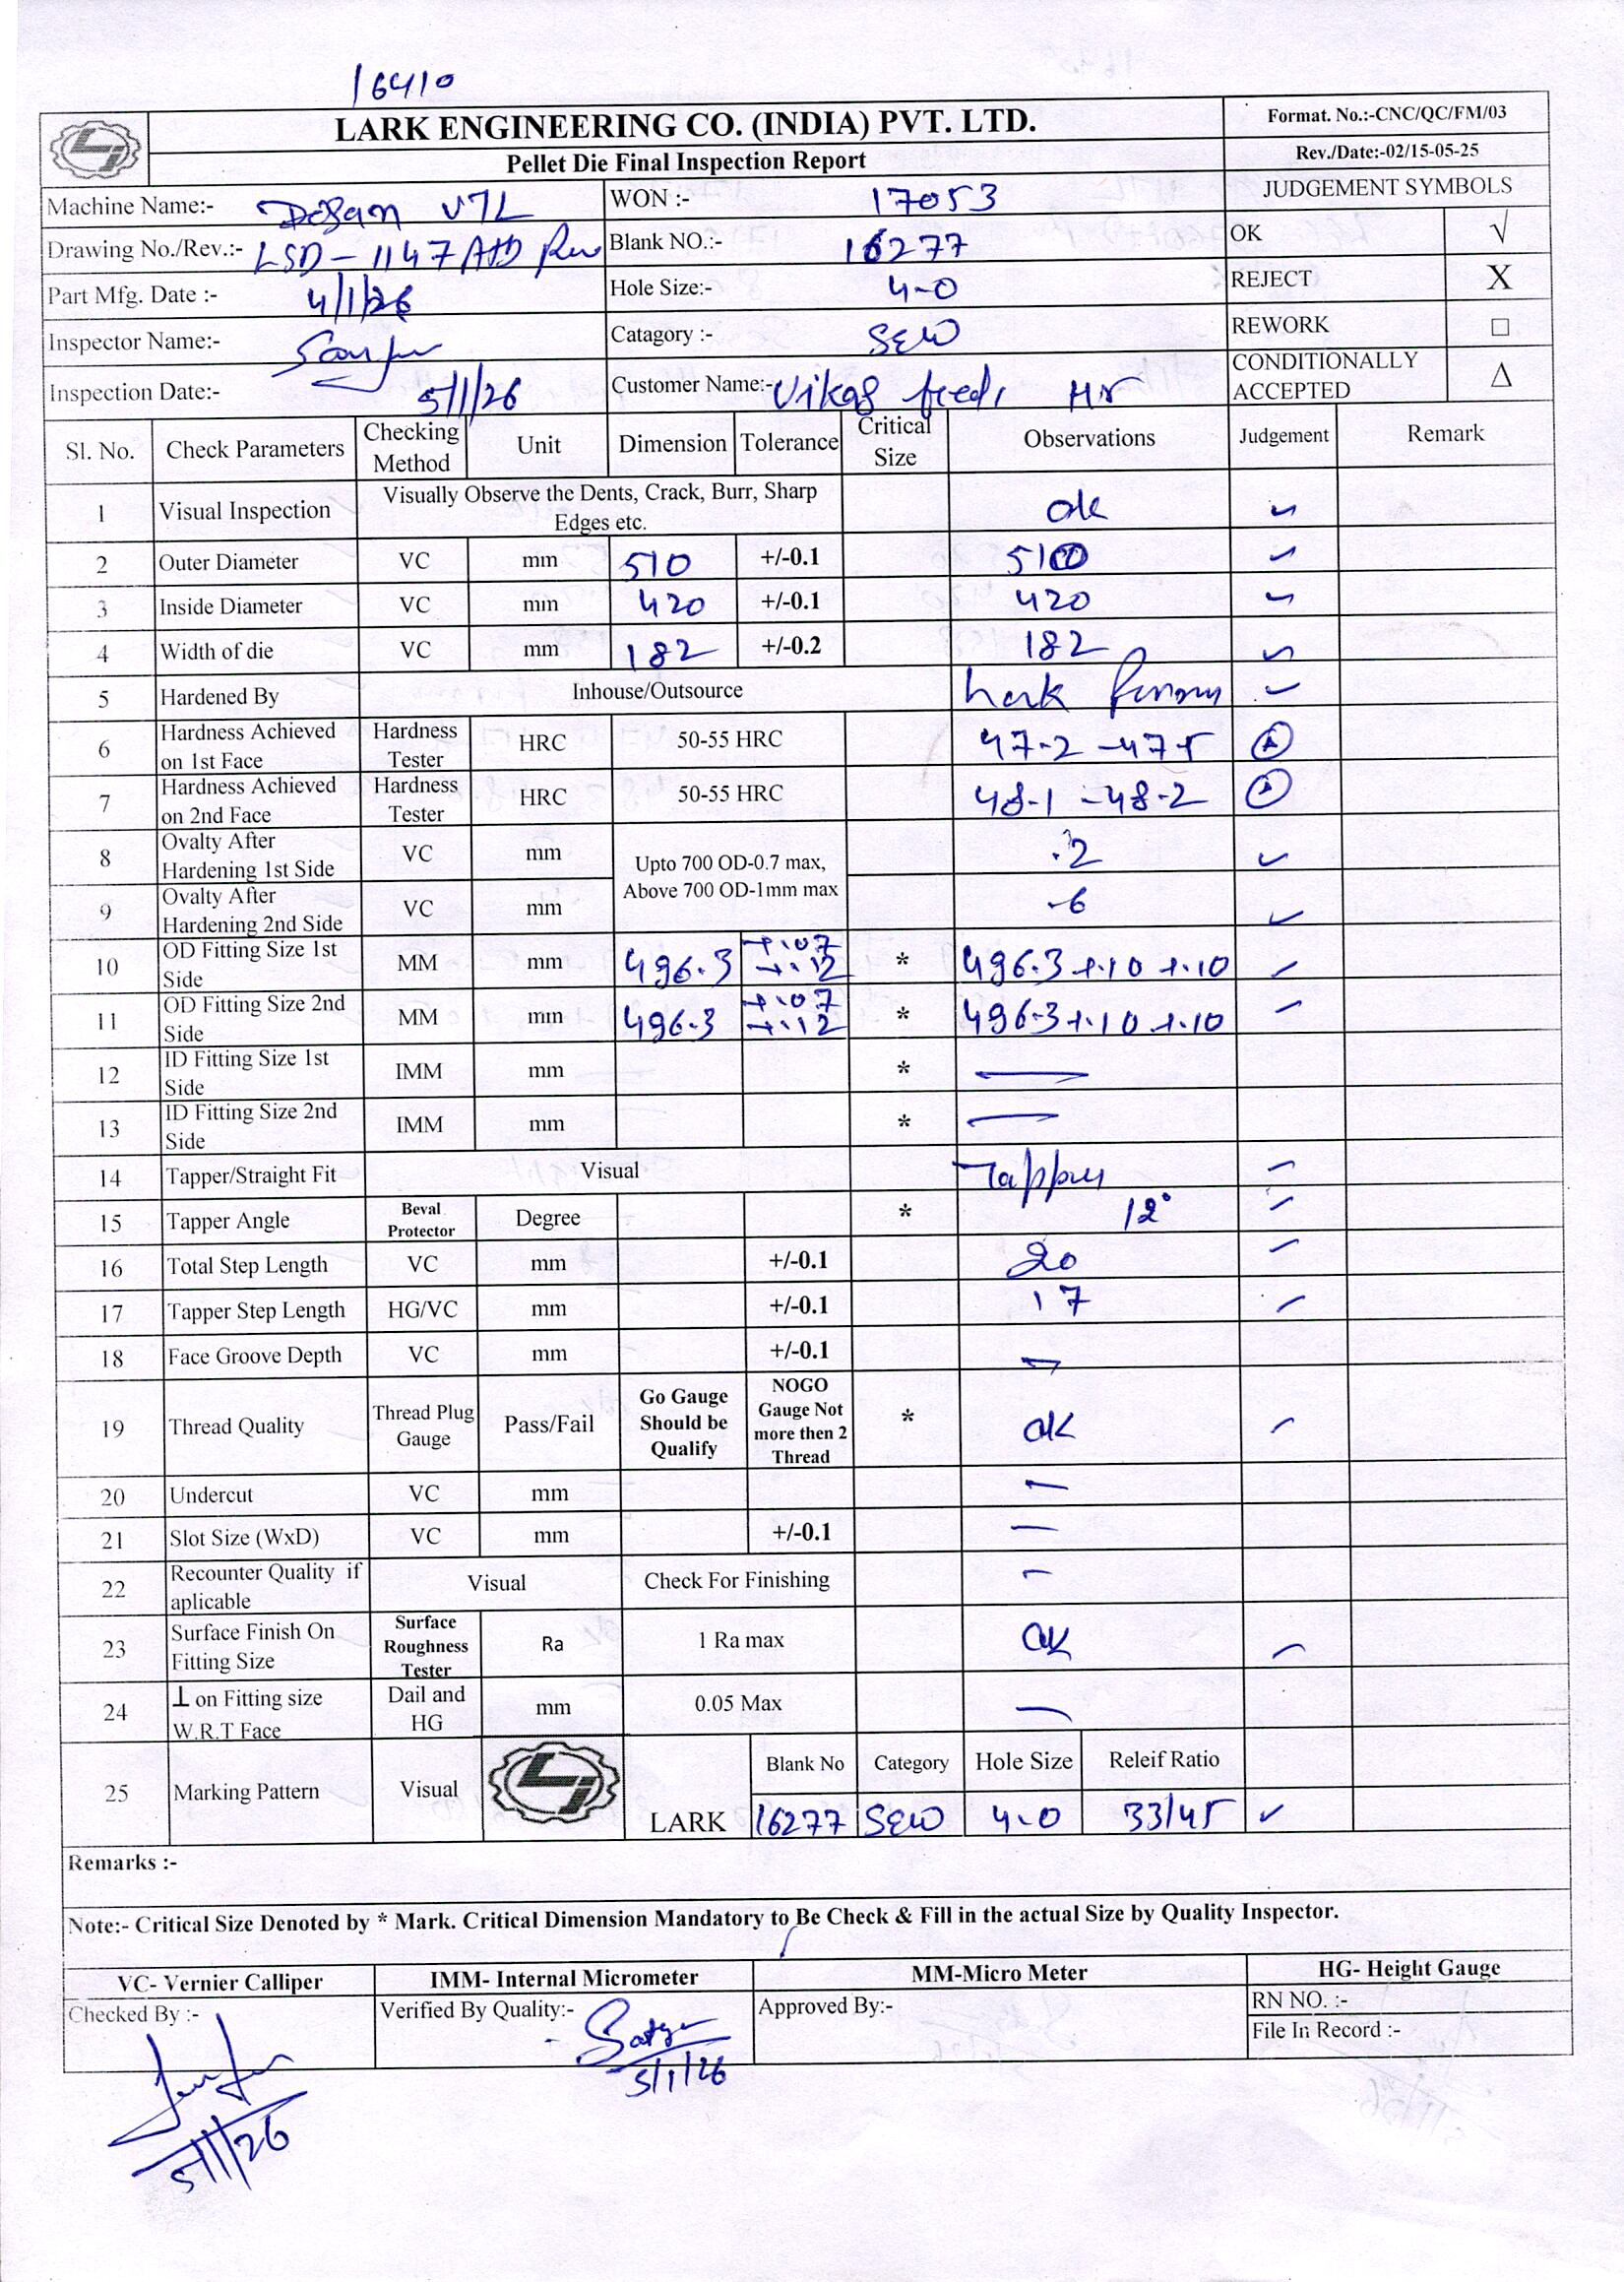 16410
LARK ENGINEERING CO. (INDIA) PVT. LTD.
Format. No.:-CNC/QC/FM/03
Pellet Die Final Inspection Report
Rev./Date:-02/15-05-25
Machine Name:- VTL WON :- 17053 JUDGEMENT SYMBOLS
Drawing No./Rev.:- LSD-1147 Blank NO.:- 16277 OK √
Part Mfg. Date :- 4/1/26 Hole Size:- 4-0 REJECT X
Inspector Name:- Catagory :- SEW REWORK □
Inspection Date:- 5/1/26 Customer Name:- Vikas feeds HR CONDITIONALLY ACCEPTED Δ
Sl. No. Check Parameters Checking Method Unit Dimension Tolerance Critical Size Observations Judgement Remark
1 Visual Inspection Visually Observe the Dents, Crack, Burr, Sharp Edges etc. ok ✓
2 Outer Diameter VC mm 510 +/-0.1 510 ✓
3 Inside Diameter VC mm 420 +/-0.1 420 ✓
4 Width of die VC mm 182 +/-0.2 182 ✓
5 Hardened By Inhouse/Outsource ✓
6 Hardness Achieved on 1st Face Hardness Tester HRC 50-55 HRC 47-2 -47-5
7 Hardness Achieved on 2nd Face Hardness Tester HRC 50-55 HRC 48-1 -48-2
8 Ovalty After Hardening 1st Side VC mm Upto 700 OD-0.7 max, Above 700 OD-1mm max .2 ✓
9 Ovalty After Hardening 2nd Side VC mm -6 ✓
10 OD Fitting Size 1st Side MM mm 496.3 +.07 +.12 * 496.3 +.10 +.10 ✓
11 OD Fitting Size 2nd Side MM mm 496.3 +.07 +.12 * 496-3 +.10 +.10 ✓
12 ID Fitting Size 1st Side IMM mm * —
13 ID Fitting Size 2nd Side IMM mm * —
14 Tapper/Straight Fit Visual Tapper ✓
15 Tapper Angle Beval Protector Degree * 12° ✓
16 Total Step Length VC mm +/-0.1 20 ✓
17 Tapper Step Length HG/VC mm +/-0.1 17 ✓
18 Face Groove Depth VC mm +/-0.1 —
19 Thread Quality Thread Plug Gauge Pass/Fail Go Gauge Should be Qualify NOGO Gauge Not more then 2 Thread * ok ✓
20 Undercut VC mm —
21 Slot Size (WxD) VC mm +/-0.1 —
22 Recounter Quality if aplicable Visual Check For Finishing —
23 Surface Finish On Fitting Size Surface Roughness Tester Ra 1 Ra max ok ✓
24 ⊥ on Fitting size W.R.T Face Dail and HG mm 0.05 Max —
25 Marking Pattern Visual LARK Blank No Category Hole Size Releif Ratio
16277 SEW 4-0 33/45 ✓
Remarks :-
Note:- Critical Size Denoted by * Mark. Critical Dimension Mandatory to Be Check & Fill in the actual Size by Quality Inspector.
VC- Vernier Calliper IMM- Internal Micrometer MM-Micro Meter HG- Height Gauge
Checked By :- Verified By Quality:- Approved By:- RN NO. :-
File In Record :-
5/1/26
5/1/26